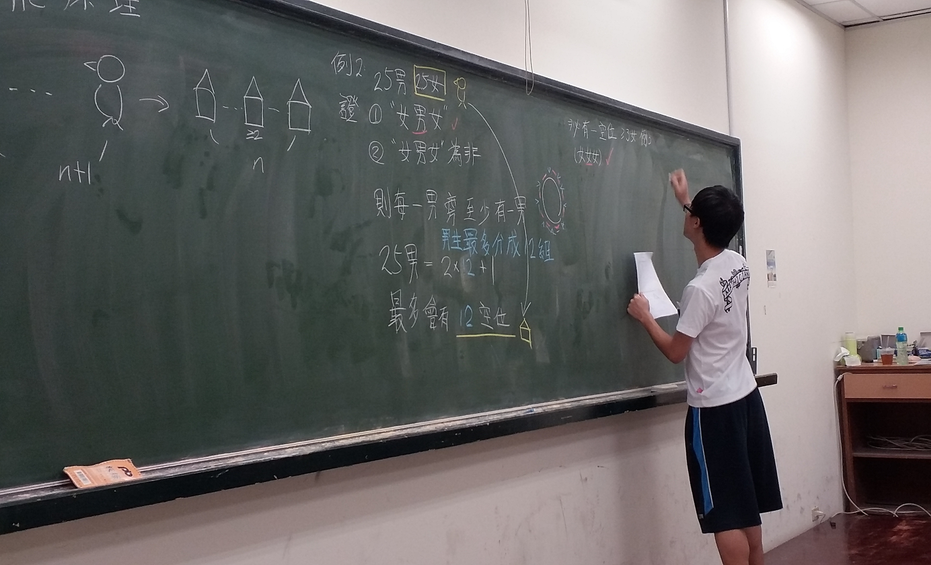 原理
n+1
n
例2
25男 25女
證 ① "女男女" ✓
② "女男女" 為非
則每一男旁至少有一男
男生最多分成12組
25男 = 2×12+1
最多會有 12空位
有一空位
(女女女) ✓